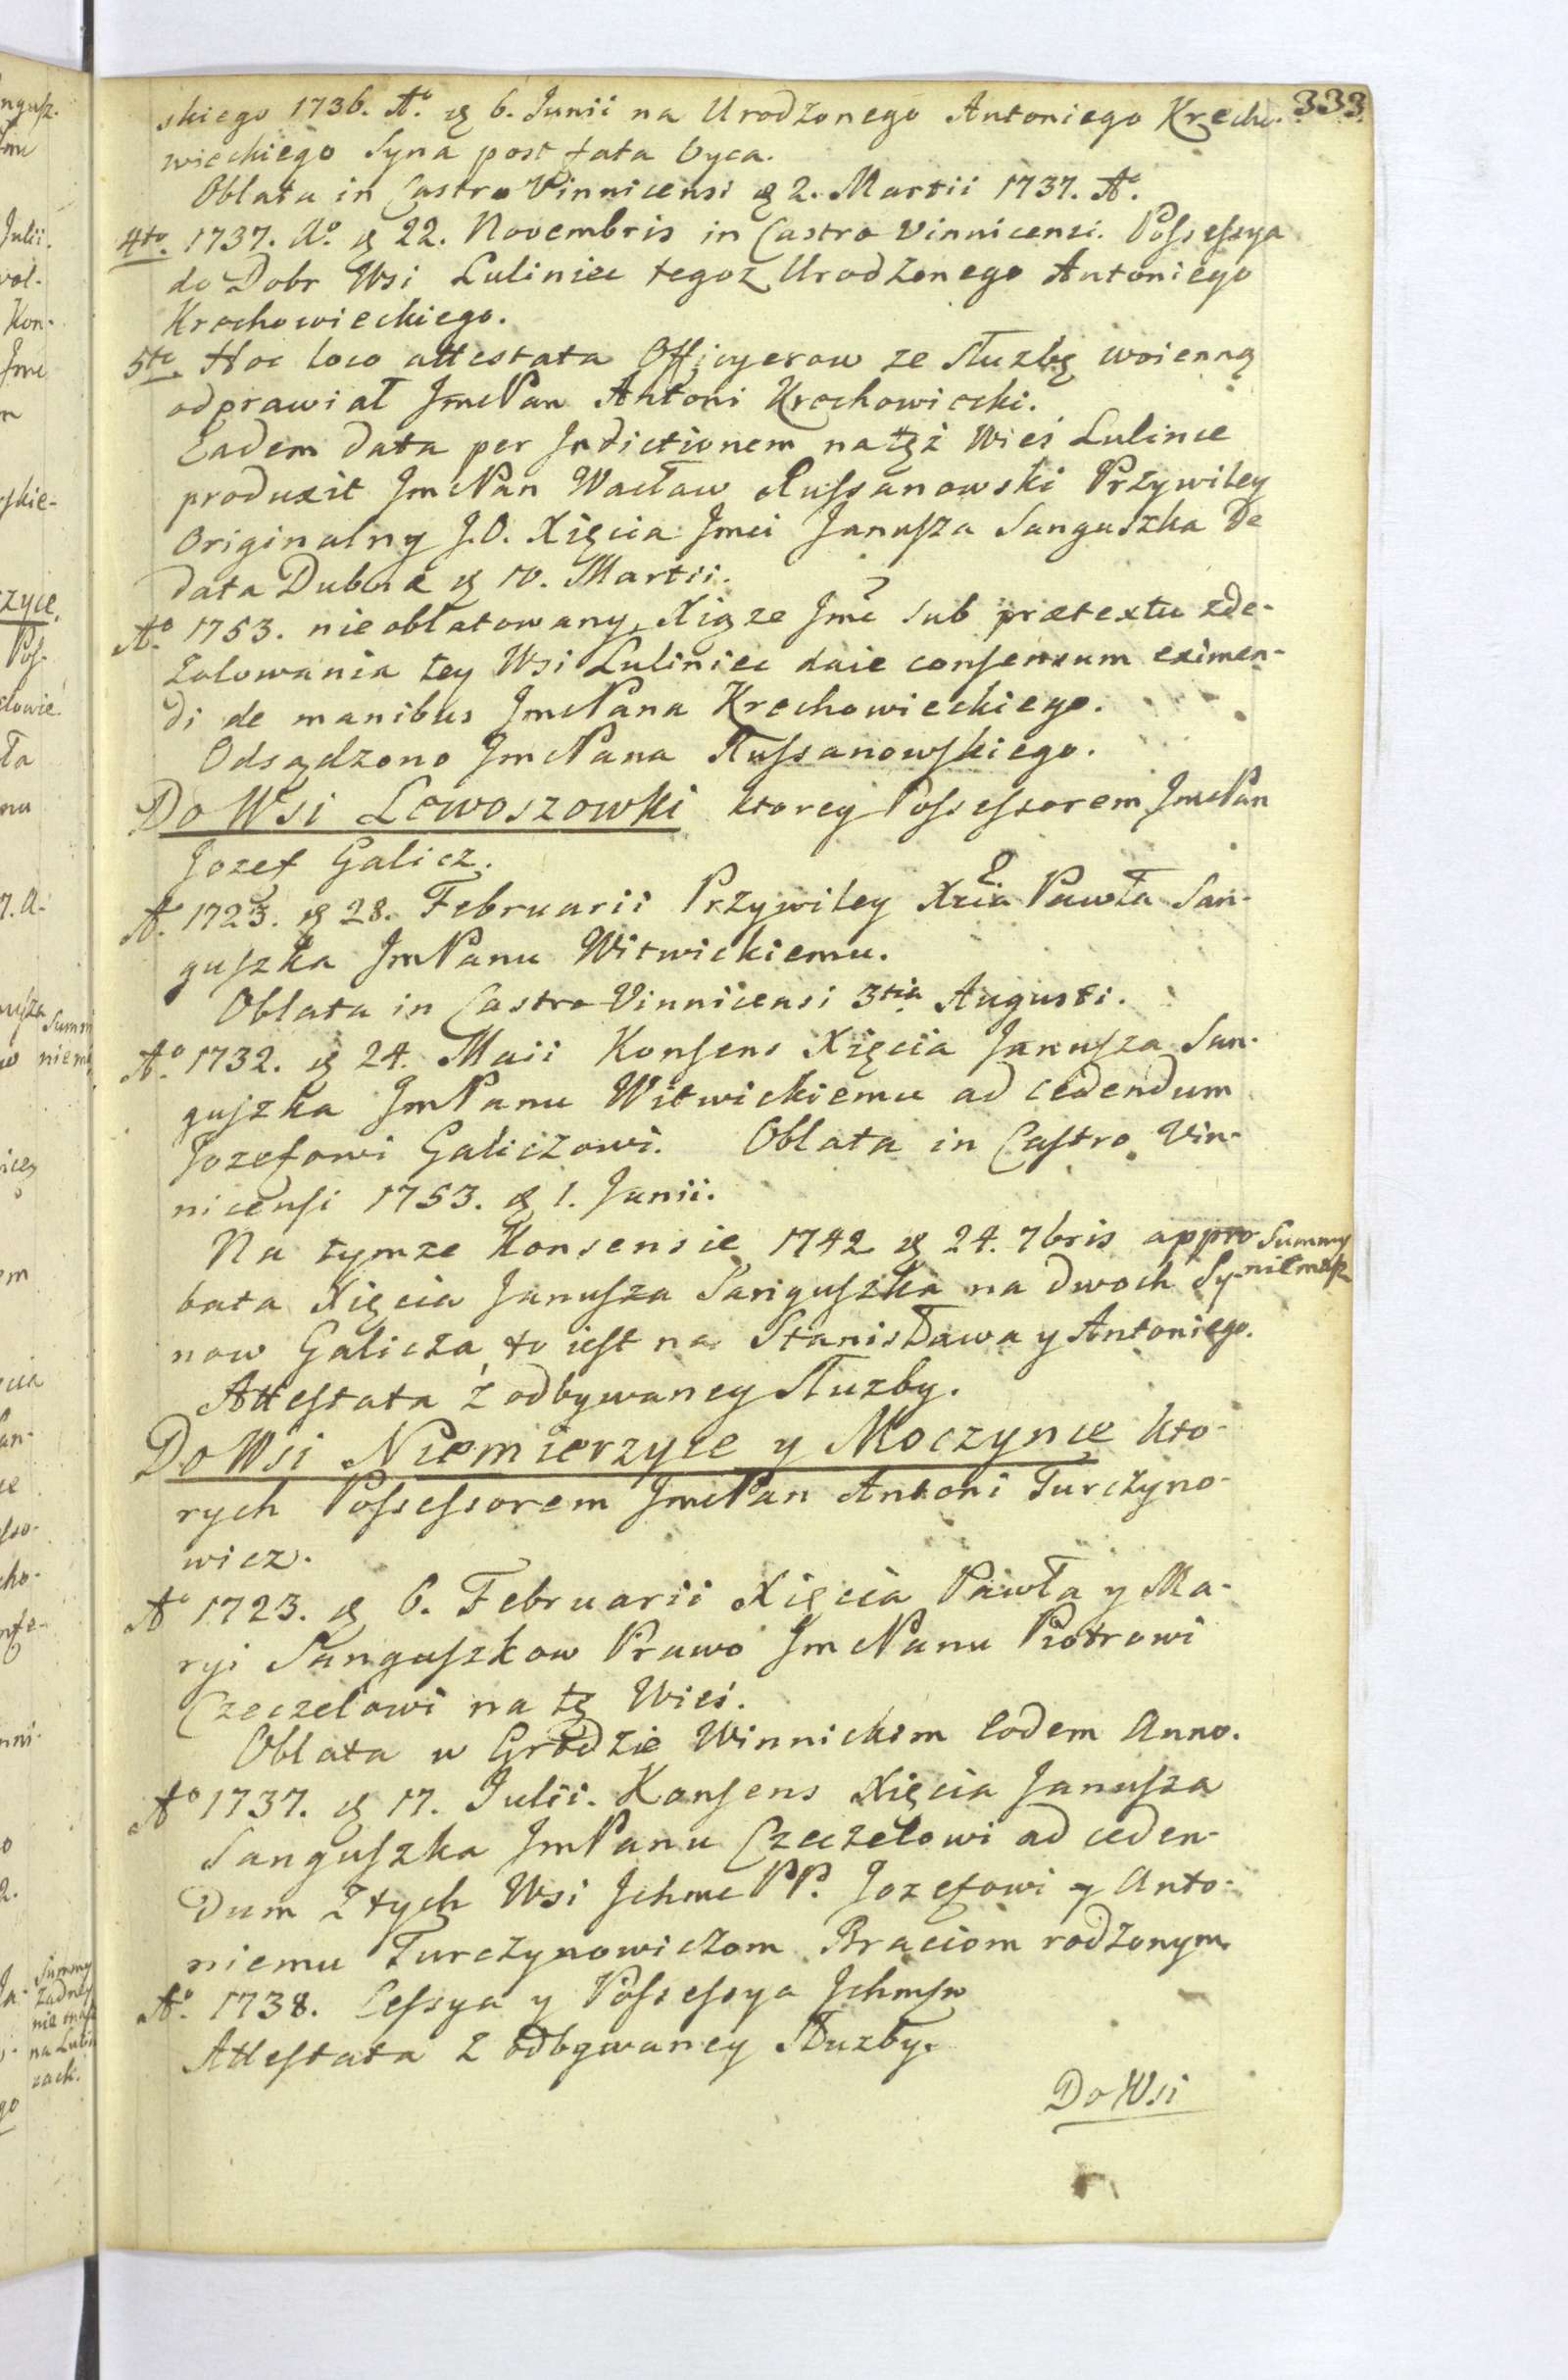 333.
skiego 1736. Aº. d 6. Junii na Urodzonego Antoniego Krecho-
wieckiego Syna post fata Oyca.
Oblata in Castro Vinnicensi d 2. Martii 1737. Aº.
4to. 1737. Aº. d 22. Novembris in Castro Vinnicensi. Possessya
do Dobr Wsi Luliniec tegoz Urodzonego Antoniego
Krechowieckiego.
5to. Hoc loco attestata Officyerow ze Służbę woienną
odprawiał JmcPan Antoni Krechowiecki.
Eadem data per Indictionem na tęż Wieś Lulince
produxit JmcPan Wacław Russanowski Przywiley
Originalny J.O. Xięcia Jmci Janusza Sanguszka De
data Dubna d 10. Martii.
Aº. 1753. nie oblatowany, Xiąze Jmć sub prætextu zde-
zolowania tey Wsi Luliniec daie consensum eximen-
di de manibus JmcPana Krechowieckiego.
Odsądzono JmcPana Russanowskiego.
Do Wsi Lewoszowki ktorey Possessorem JmcPan
Jozef Galicz.
A. 1723. d 28. Februarii Przywiley Xcia Pawła San-
guszka JmPanu Witwickiemu.
Oblata in Castro Vinnicensi 3tia Augusti.
Aº. 1732. d 24. Maii Konsens Xięcia Janusza San-
guszka JmPanu Witwickiemu ad cedendum
Jozefowi Galiczowi. Oblata in Castro Vin-
nicensi 1753. d 1. Junii.
Na tymze Konsensie 1742 d 24. 7bris appro-
bata Xięcia Janusza Sanguszka na dwoch Sy-
now Galicza, to iest na Stanisława y Antoniego.
Summy
niemasz
Attestata z odbywaney Służby.
Do Wsi Niemierzyce y Moczynce kto-
rych Possessorem JmcPan Antoni Turczyno-
wicz.
Aº 1723. d 6. Februarii Xięcia Pawła y Ma-
ryi Sanguszkow Prawo JmcPanu Piotrowi
Czeczelowi na tę Wieś.
Oblata w Grodzie Winnickim Eodem Anno.
Aº 1737. d 17. Julii. Konsens Xięcia Janusza
Sanguszka JmPanu Czeczelowi ad ceden-
dum z tych Wsi Ichmc PP. Jozefowi y Anto-
niemu Turczynowiczom Braciom rodzonym.
Aº. 1738. Cessya y Possessya Ichmsw
Attestata z odbywaney Służby.
Do Wsi